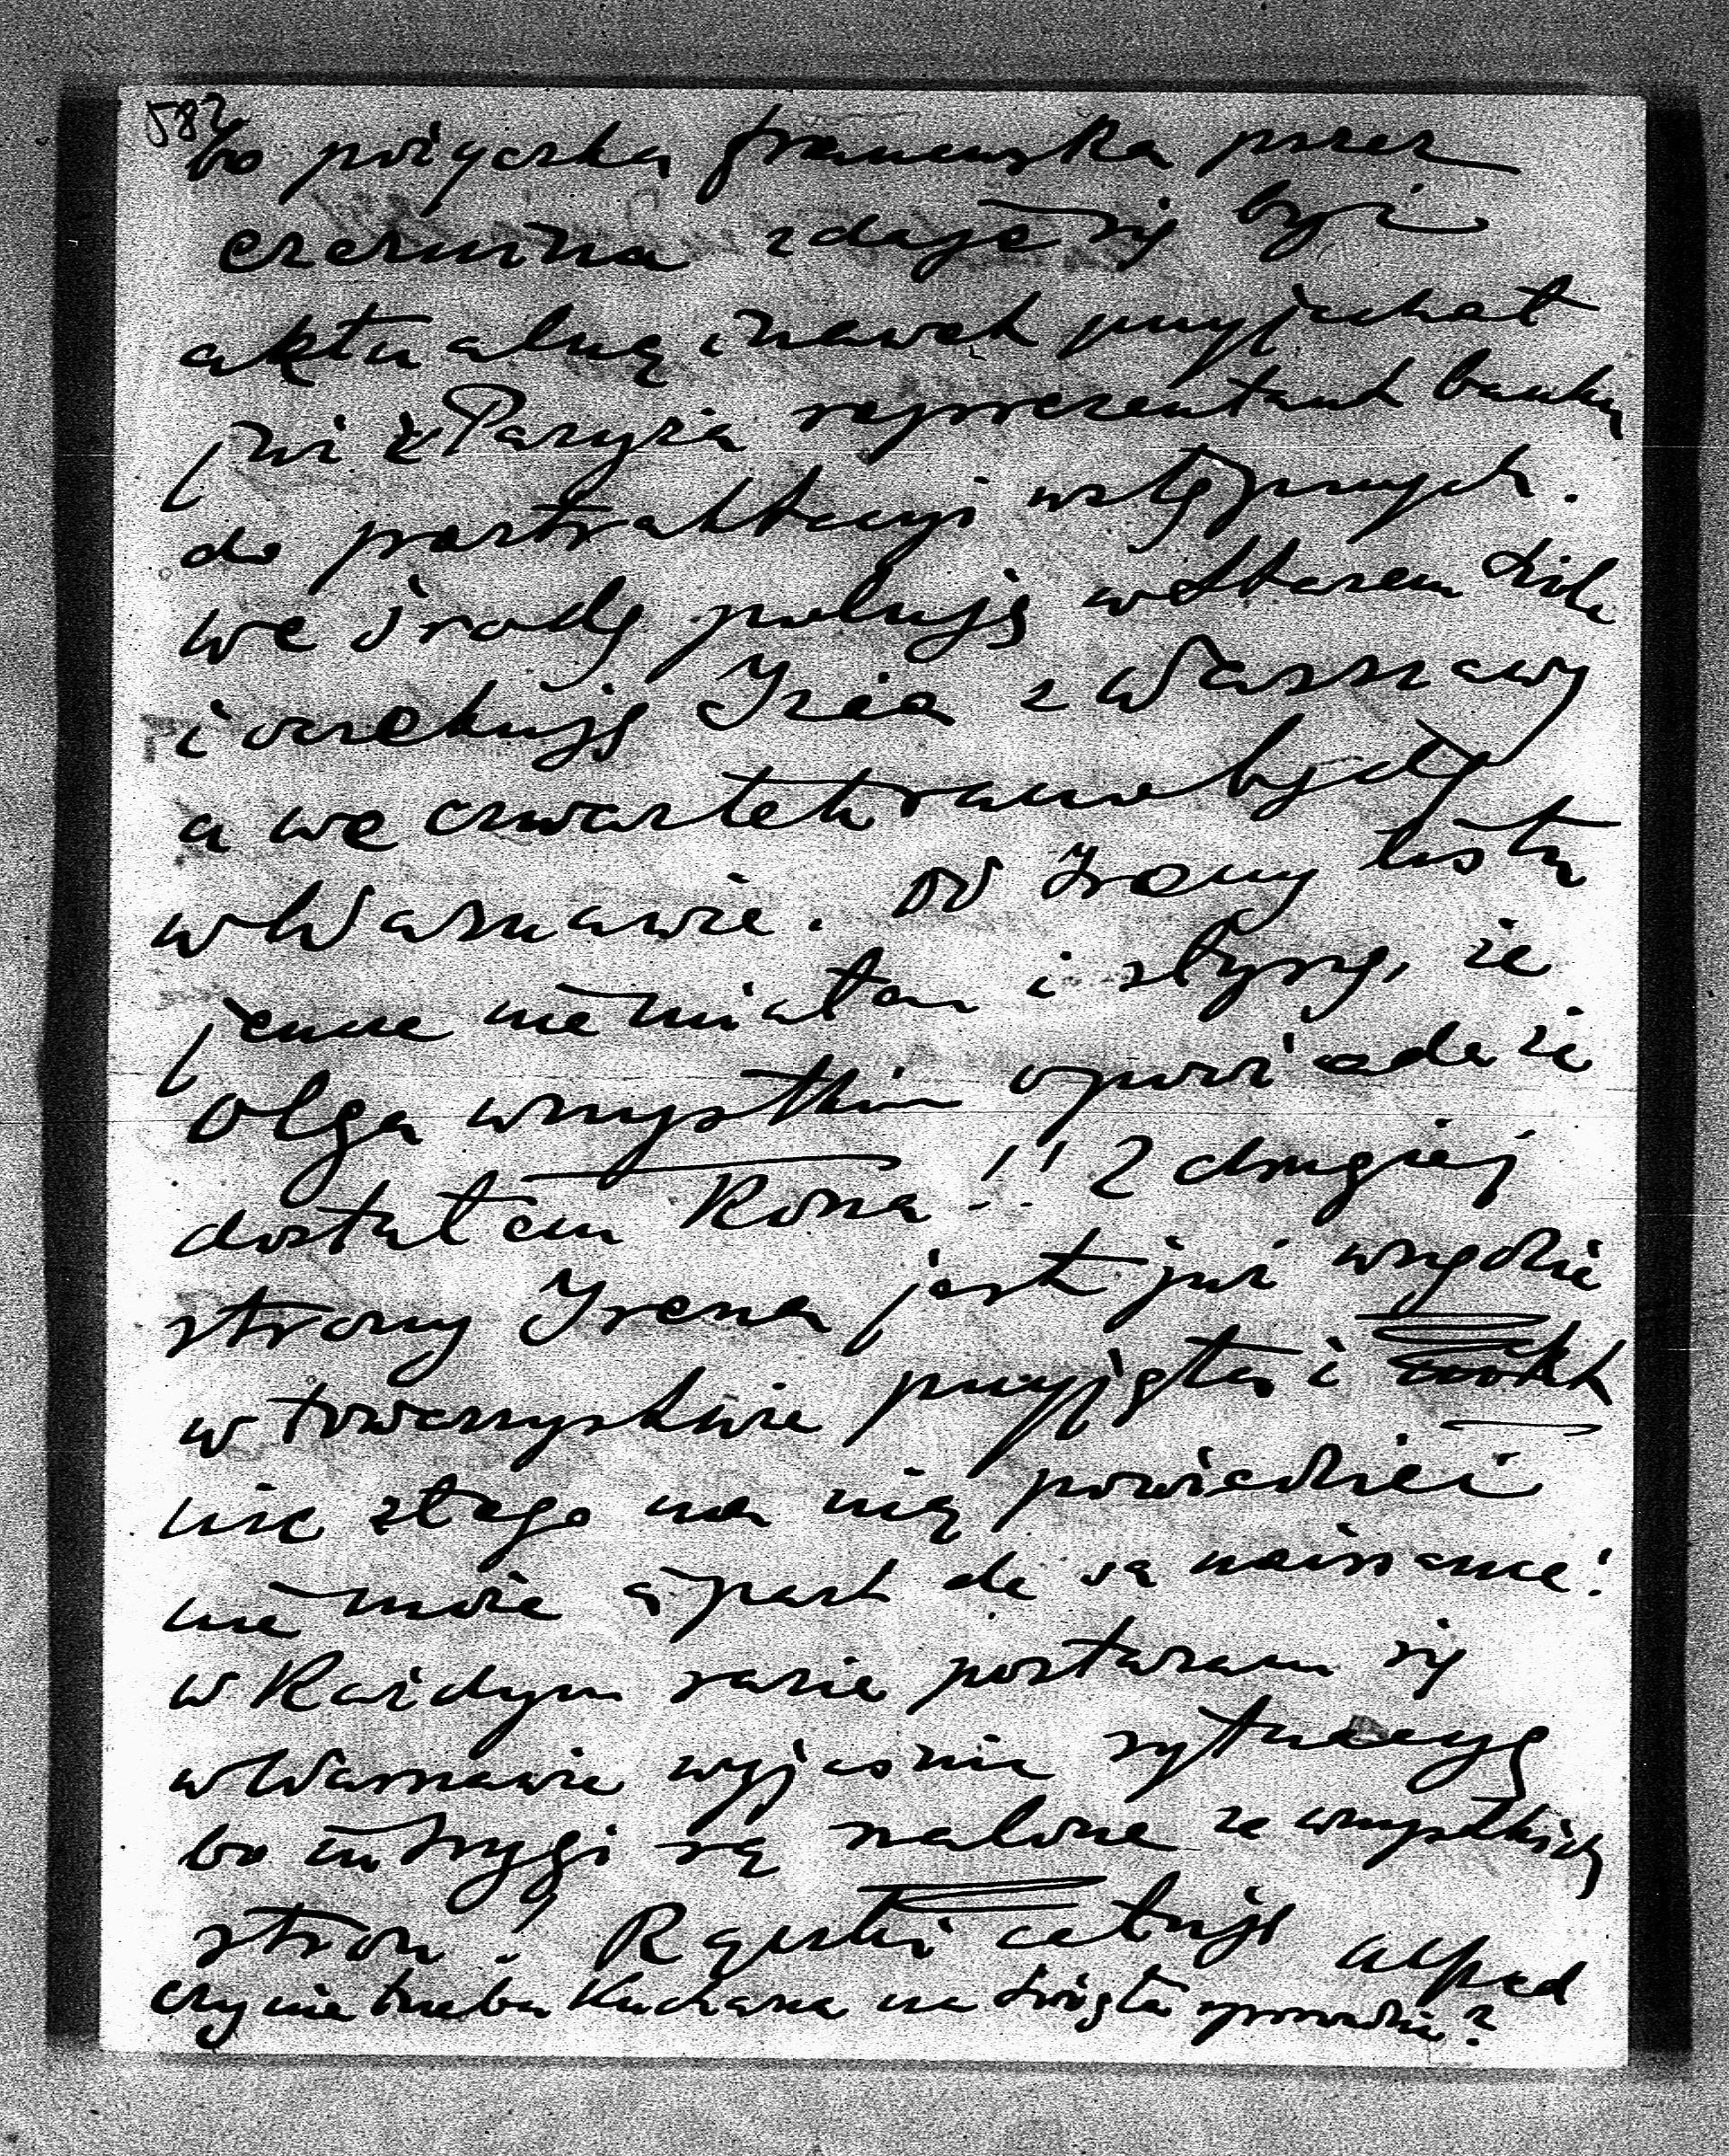 582
bo pożyczka francuska przez
czerwina zdaje się być
aktualną i nawet przyjechał
już z Paryża reprezentant banku
do pertraktacyi wstępnych.
we środę poluję w
i oczekuję Izia z Warszawy
a we czwartek rano będę
w Warszawie. od Ireny listu
jeszcze nie miałam i słyszę, że
Olga wszystkim opowiada że
dostałem Kosza!! Z drugiej
strony Irena jest już wszędzie
w towarzystwie przyjęta i nikt
nic złego na nią powiedzieć
nie może apart de sa naissance!
w Każdym razie postaram się
w Warszawie wyjaśnić sytuacyę
bo intrygi są szalone ze wszystkich
stron! Rączki całuję Alfred
czy nie trzeba Kucharza na święta sprowadzić?